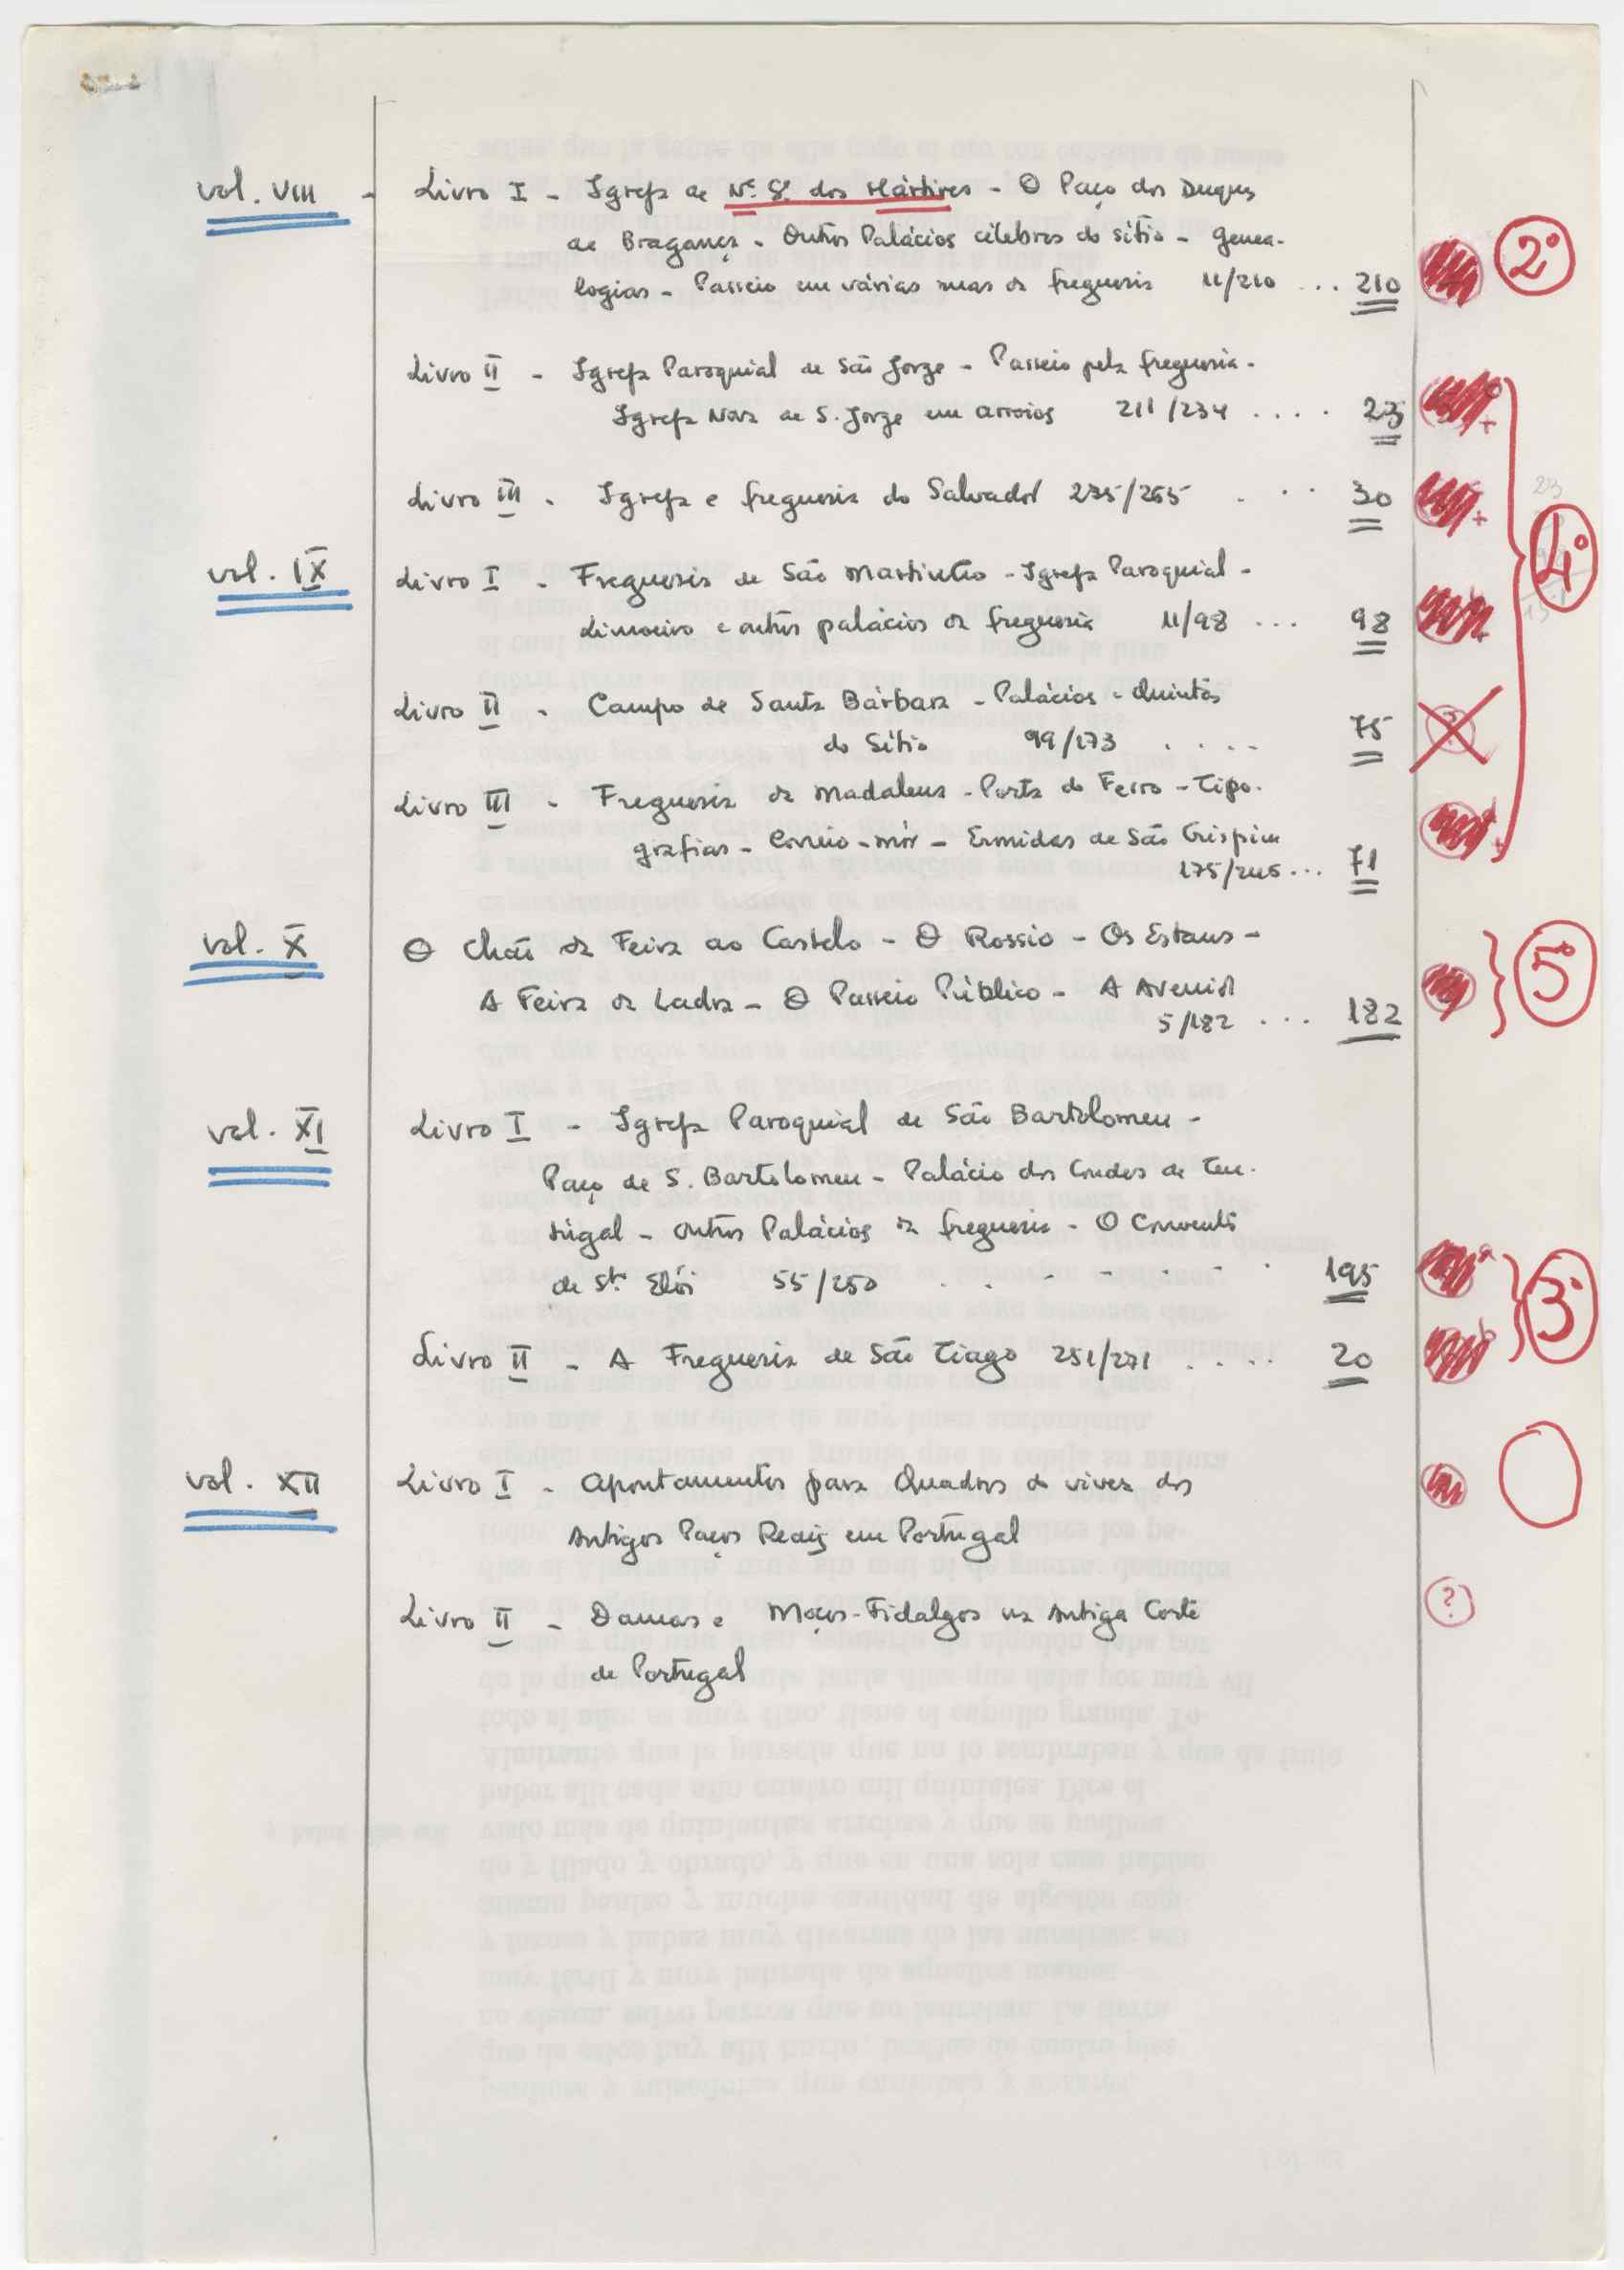 vol. VIII - Livro I - Igreja de Nª Sª dos Mártires - O Paço dos Duques
de Bragança - Outros Palácios célebres do sítio - Genea-
logias - Passeio em várias ruas da freguesia 11/210 ... 210
2º
Livro II - Igreja Paroquial de São Jorge - Passeio pela freguesia -
Igreja Nova de S. Jorge em Arroios 211/234 .... 23
Livro III - Igreja e freguesia do Salvador 235/265 ... 30
4º
vol. IX Livro I - Freguesia de São Martinho - Igreja Paroquial -
Limoeiro e outros palácios da freguesia 11/98 ... 98
Livro II - Campo de Santa Bárbara - Palácios - Quintas
do Sítio 99/173 .... 75
?
Livro III - Freguesia da Madalena - Porta do Ferro - Tipo-
grafias - Correio-mór - Ermidas de São Crispim
175/245... 71
vol. X O Chão da Feira ao Castelo - O Rossio - Os Estaus -
A Feira da Ladra - O Passeio Público - A Avenida
5/182 ... 182
5º
vol. XI Livro I - Igreja Paroquial de São Bartolomeu -
Paço de S. Bartolomeu - Palácio dos Condes de Ten-
túgal - Outros Palácios da freguesia - O Convento
de Stº Elói 55/250 ....... 195
3º
Livro II - A Freguesia de São Tiago 251/271 .... 20
vol. XII Livro I - Apontamentos para Quadros do viver dos
Antigos Paços Reais em Portugal
Livro II - Damas e Moços-Fidalgos na Antiga Corte
?
de Portugal